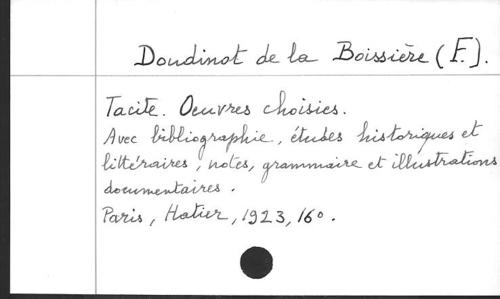 Doudinot de la Boissière (F.).
Tacite. Oeuvres choisies.
Avec bibliographie, études historiques et
littéraires, notes, grammaire et illustrations
documentaires.
Paris, Hatier, 1923, 16°.